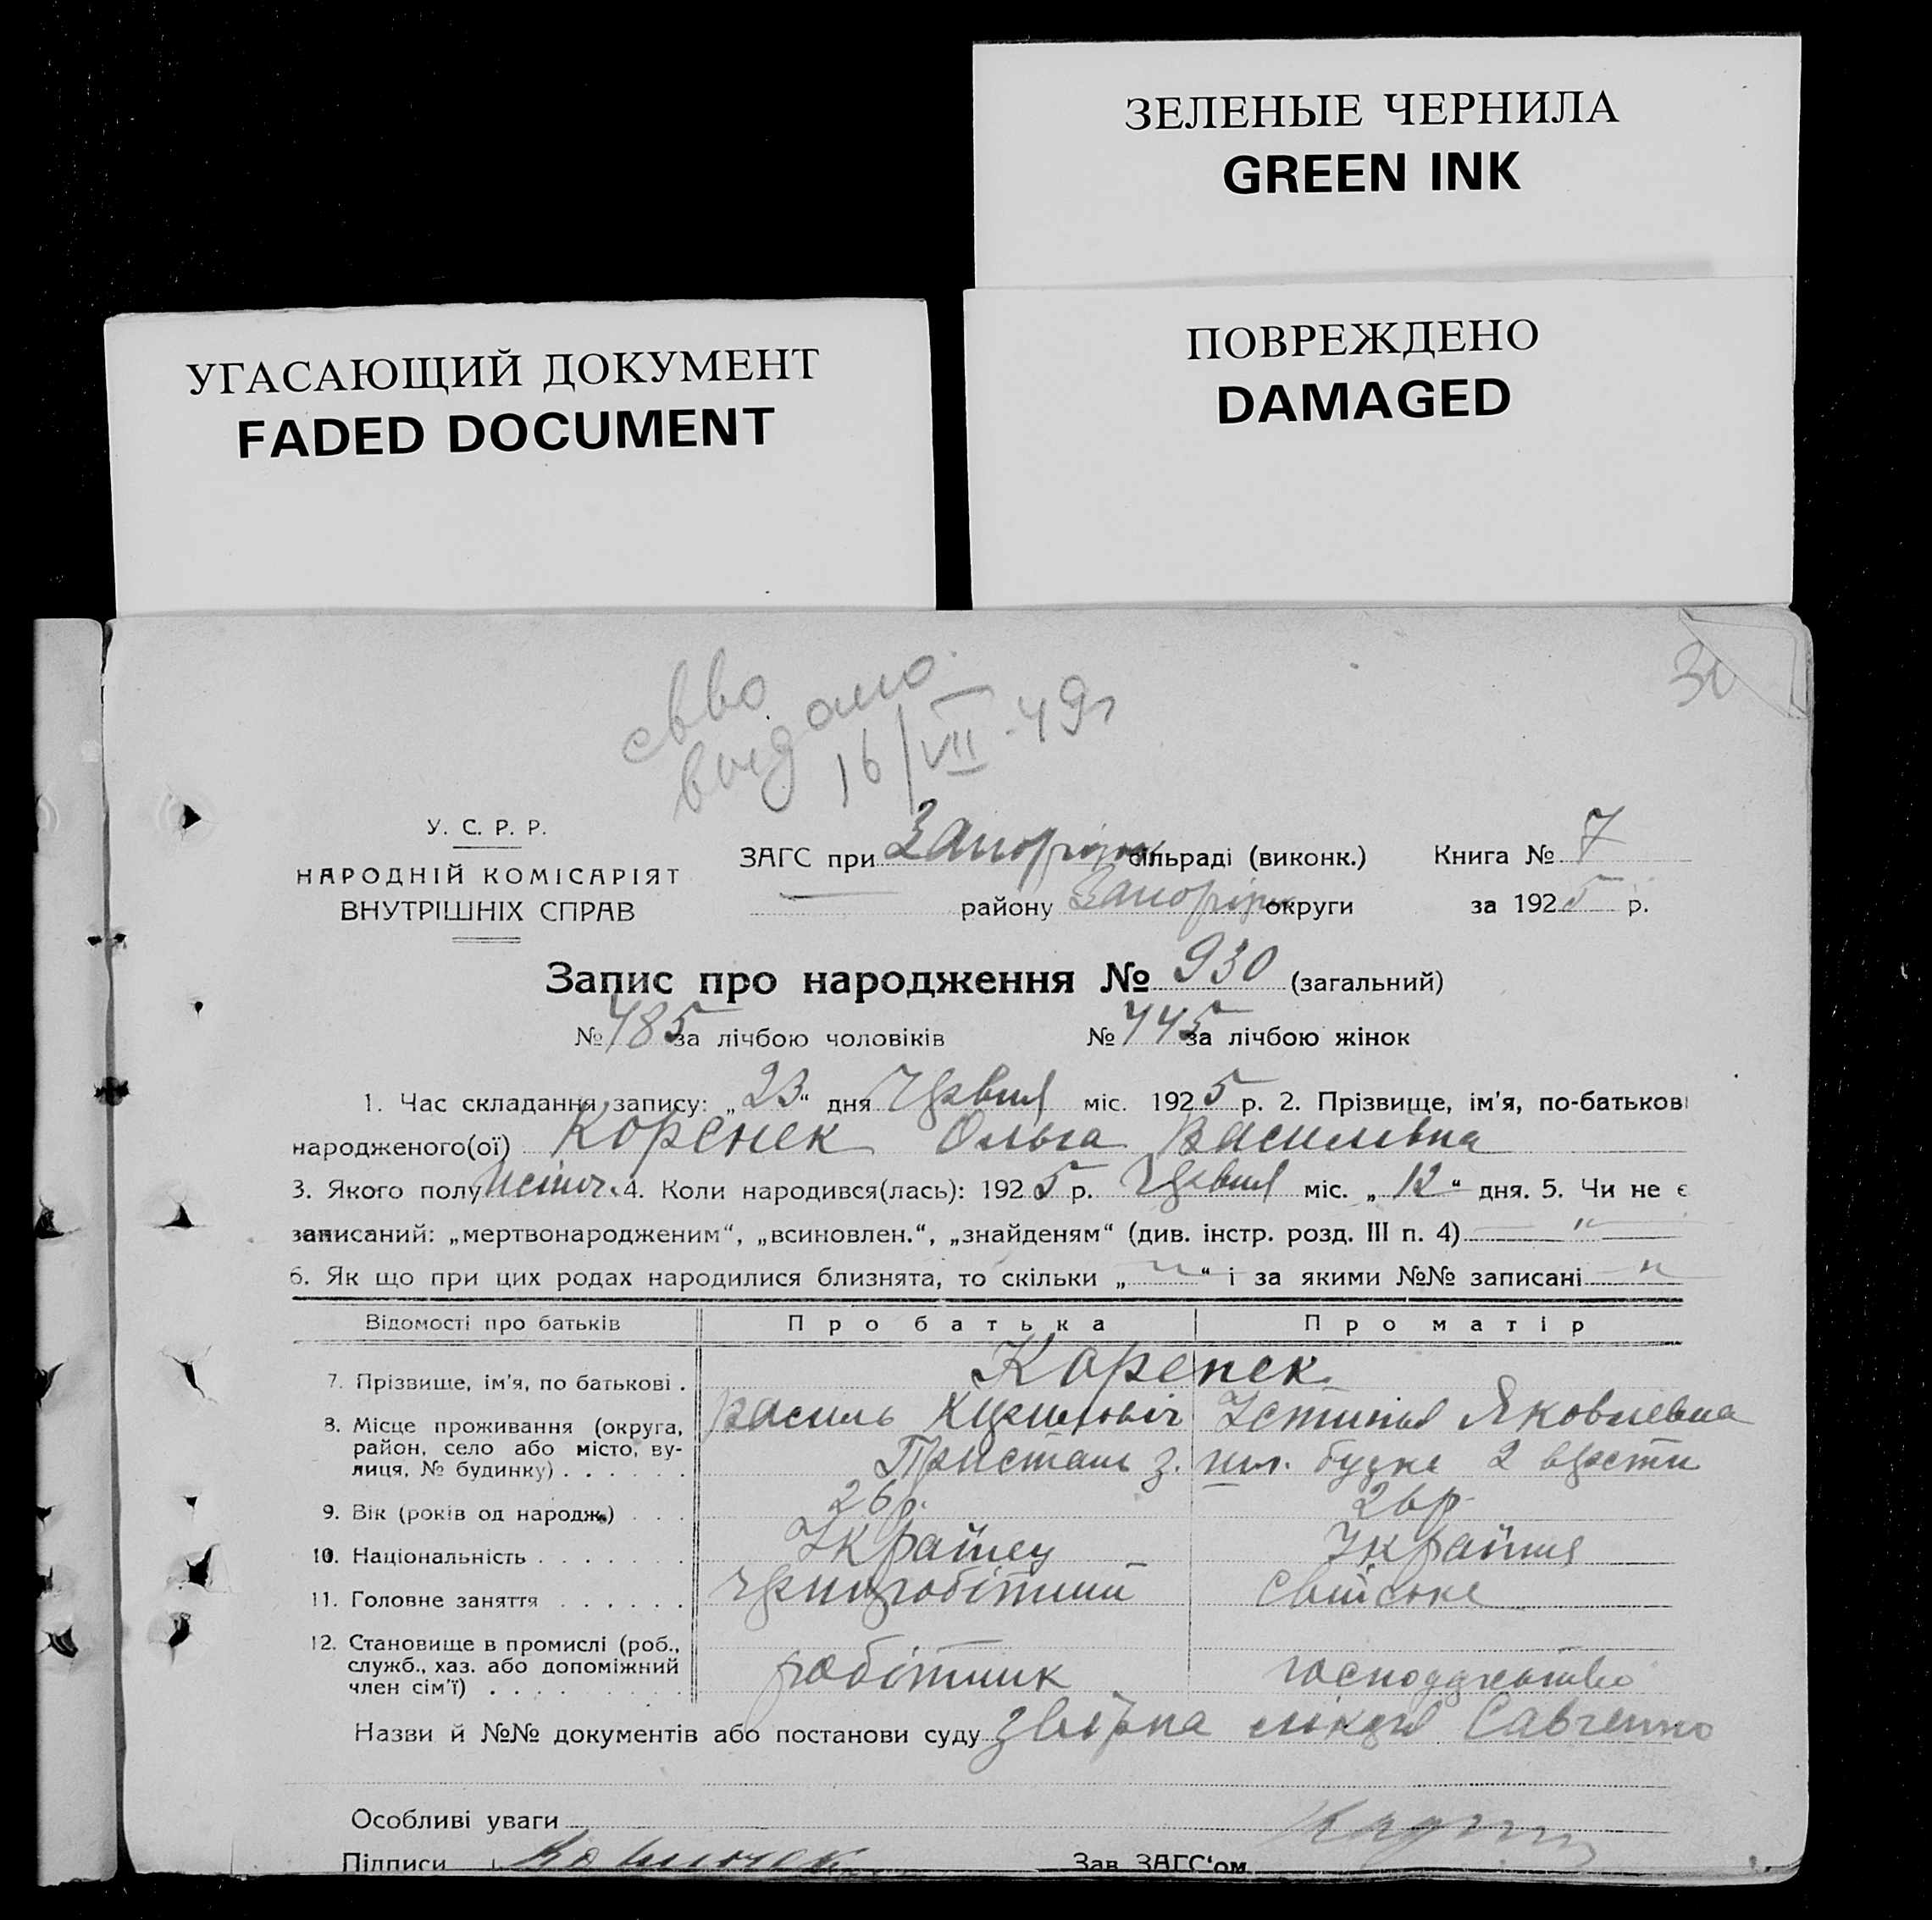 ЗЕЛЕНЫЕ ЧЕРНИЛА
GREEN INK
УГАСАЮЩИЙ ДОКУМЕНТ
FADED DOCUMENT
ПОВРЕЖДЕНО
DAMAGED
30
видано
16/VII-49г
У. С. Р. Р.
НАРОДНІЙ КОМІСАРІЯТ
ВНУТРІШНІХ СПРАВ
ЗАГС при Запоріжк сільраді (виконк.) Книга № 7
району Запоріжк округи за 1925 р.
Запис про народження № 930 (загальний)
№ 485 за лічбою чоловіків № 445 за лічбою жінок
1. Час складання запису: „23“ дня Червня міс. 1925 р. 2. Прізвище, ім'я, по-батькові
народженого(ої) Коренек Ольга Василівна
3. Якого полу жіноч. 4. Коли народився(лась): 1925 р. Червня міс. „12“ дня. 5. Чи не є
записаний: „мертвонародженим“, „всиновлен.“, „знайденям“ (див. інстр. розд. III п. 4) — " —
6. Як що при цих родах народилися близнята, то скільки „ " “ і за якими №№ записані "
Відомості про батьків Про батька Про матір
7. Прізвище, ім'я, по батькові . Коренек
Василь Кузьмович Устинья Яковлевна
8. Місце проживання (округа, район, село або місто, вулиця, № будинку) . . . . . . Пристань з. буд 2 версти
9. Вік (років од народж.) . . . 26 р. 26 р
10. Національність . . . . . . . Українец Україня
11. Головне заняття . . . . . . чернороботний свійське
12. Становище в промислі (роб., служб., хаз. або допоміжний член сім'ї) . . . . робітник господарство
Назви й №№ документів або постанови суду Савченко
Особливі уваги
Підписи Зав. ЗАГС'ом